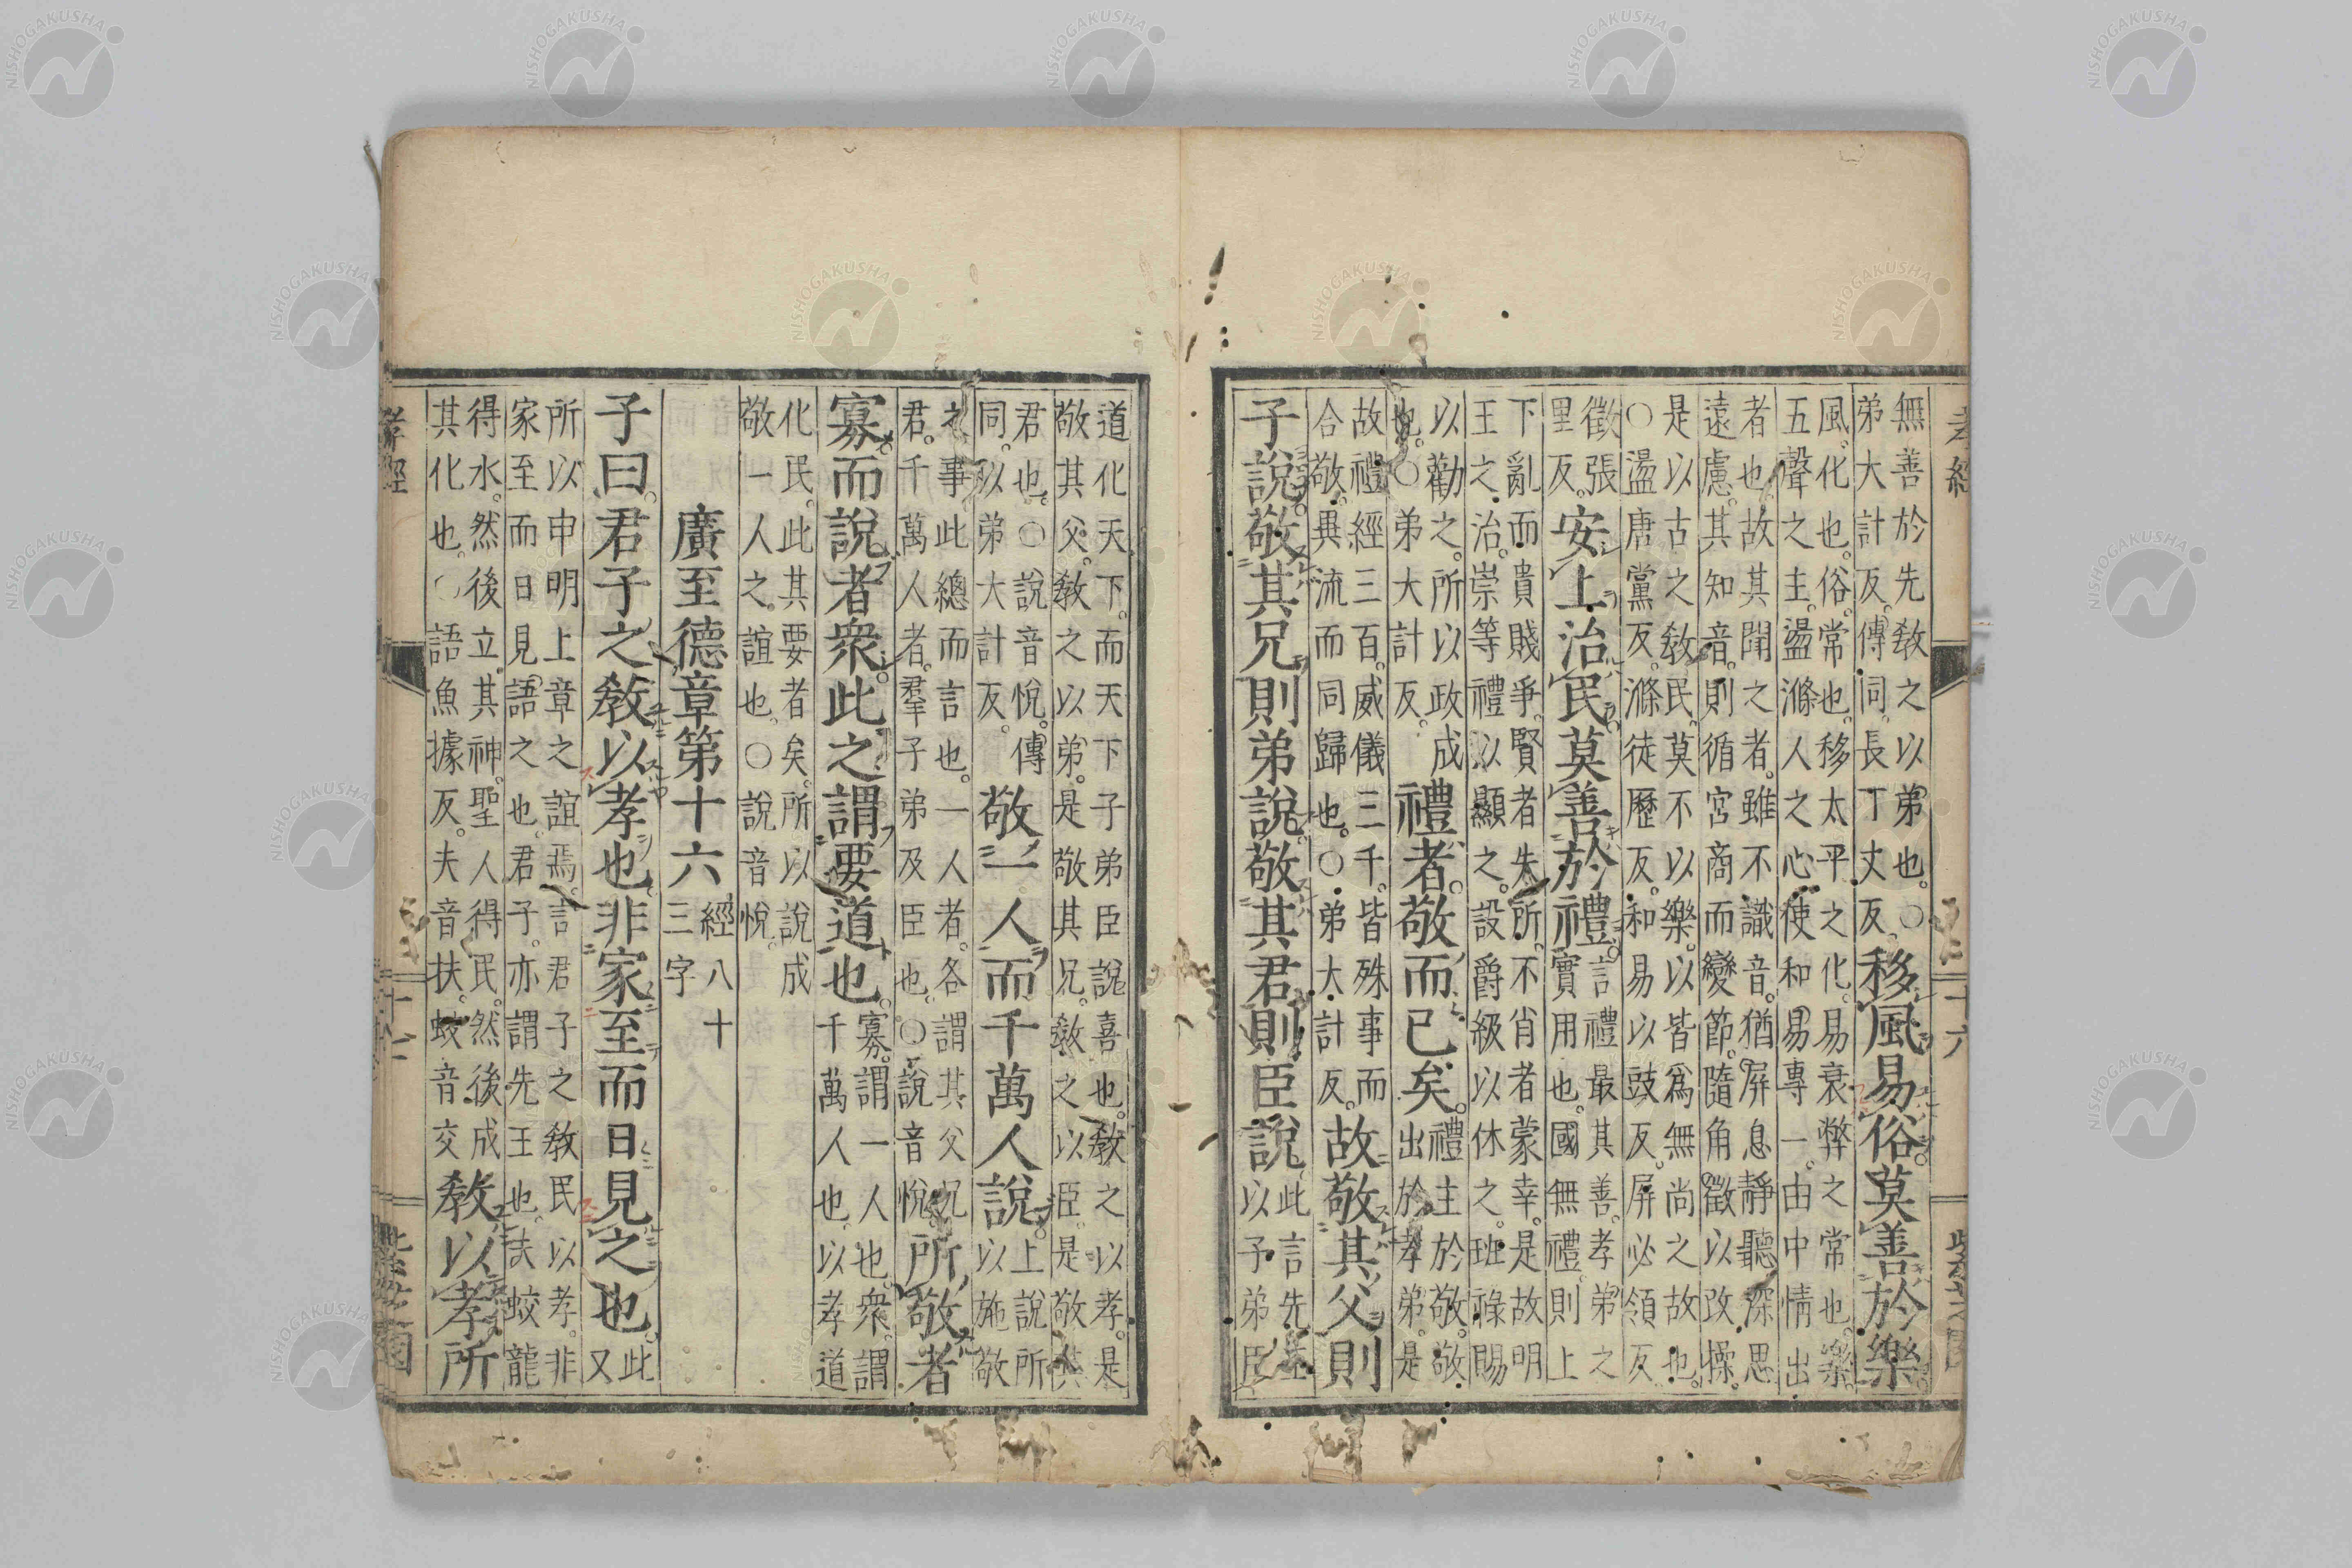 無善於先敎之以弟也。○
弟大計反。傳同。長丁丈反。
移風易俗。莫善於樂。
風。化也。俗。常也。移太平之化。易衰弊之常也。樂。
五聲之主。盪滌人之心。使和易專一。由中情出
者也。故其聞之者。雖不識音。猶屏息靜聽。深思
遠慮。其知音。則循宮商而變節。隨角徵以改操。
是以古之敎民。莫不以樂。以皆爲無尚之故也。
○盪唐黨反。滌徒歷反。和易以豉反。屏必領反
徵張
里反。
安上治民。莫善於禮。
言禮最其善。孝弟之
實用也。國無禮。則上
下亂而貴賤爭。賢者失所。不肖者蒙幸。是故明
王之治。崇等禮以顯之。設爵級以休之。班祿賜
以勸之。所以政成
也。○弟大計反。
禮者。敬而已矣。
禮主於敬。敬
出於孝弟。是
故禮經三百。威儀三千。皆殊事而
合敬。異流而同歸也。○弟大計反。
故敬其父。則
子說。敬其兄。則弟說。敬其君。則臣說。
此言先王
以子弟臣
道化天下。而天下子弟臣說喜也。敎之以孝。是
敬其父。敎之以弟。是敬其兄。敎之以臣。是敬其
君也。○說音悅。傳
同。以弟大計反。
敬一人而千萬人說。
上說所
以施敬
之事。此總而言也。一人者。各謂其父兄
君。千萬人者。羣子弟及臣也。○說音悅。
所敬者
寡。而說者衆。此之謂要道也。
寡。謂一人也。衆。謂
千萬人也。以孝道
化民。此其要者矣。所以說成
敬一人之誼也。○說音悅。
廣至德章第十六
經八十
三字
子曰。君子之敎以孝也。非家至而日見之也。
此
又
所以申明上章之誼焉。言君子之敎民以孝。非
家至而日見語之也。君子。亦謂先王也。夫蛟龍
得水。然後立其神。聖人得民。然後成
其化也。○語魚據反。夫音扶。蛟音交
敎以孝。所
孝經
十七